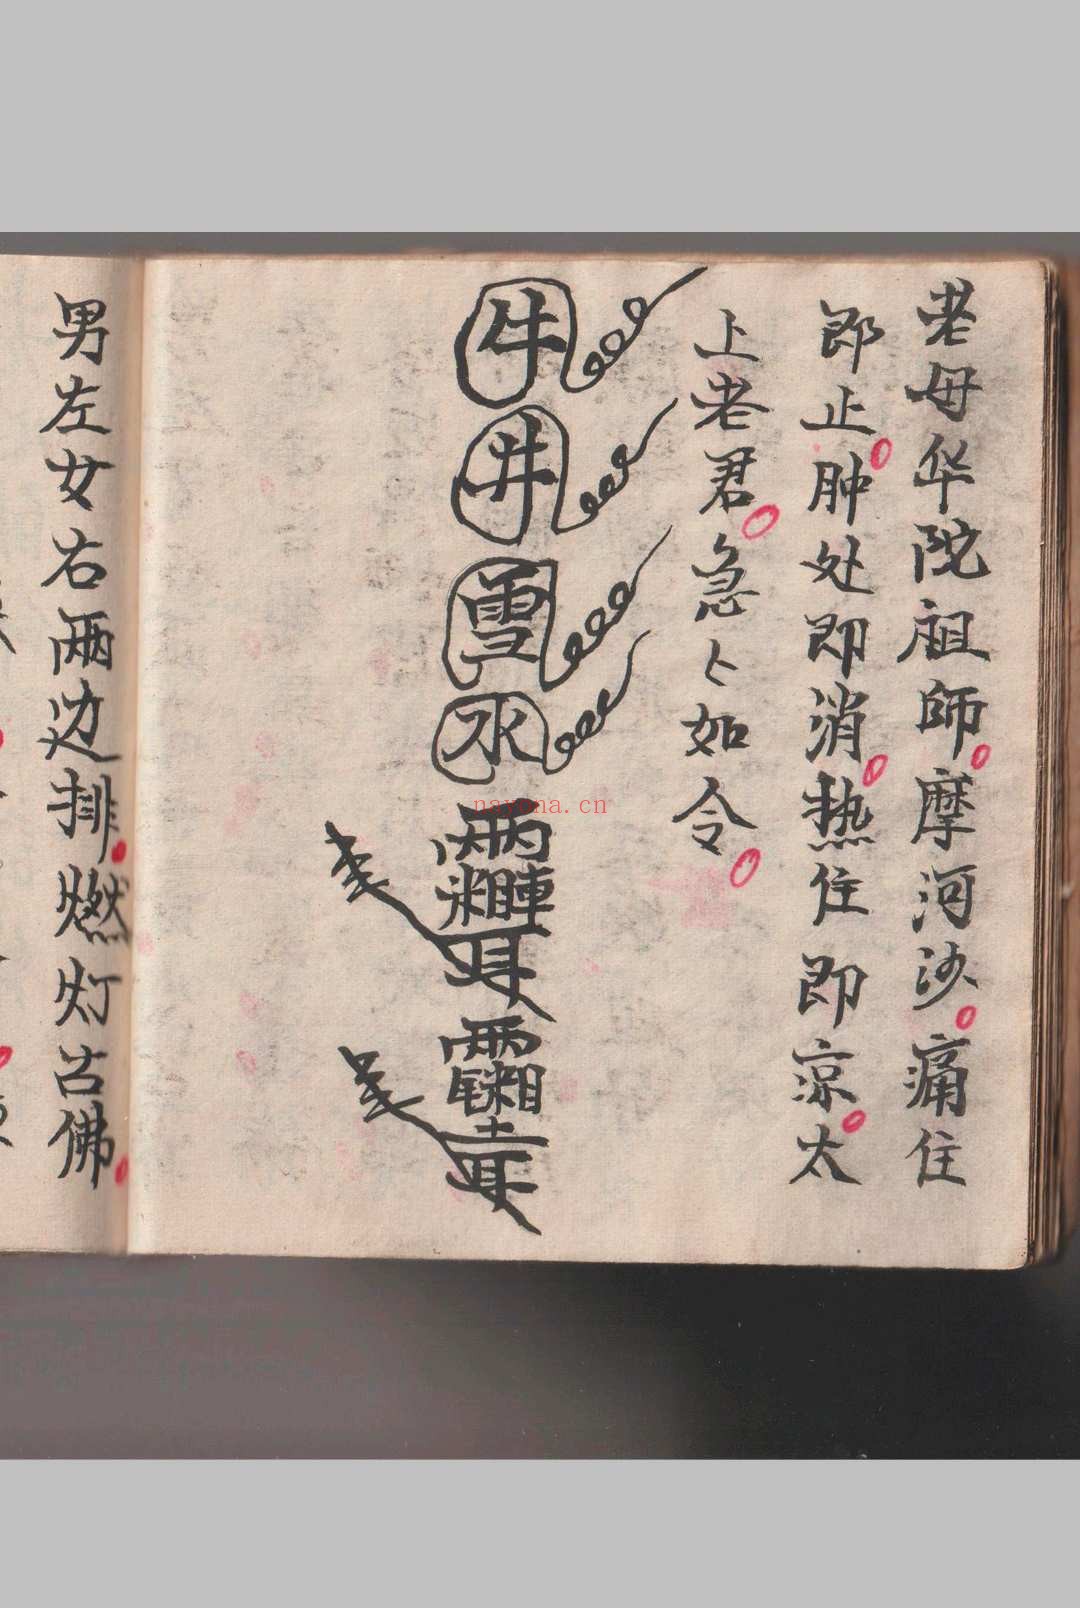 老母华陀祖師摩河沙痛住
即止肿处即消热住即凉太
上老君急〻如令
牛
井
雪
水
男左女右兩边排燃灯古佛
nayona.cn